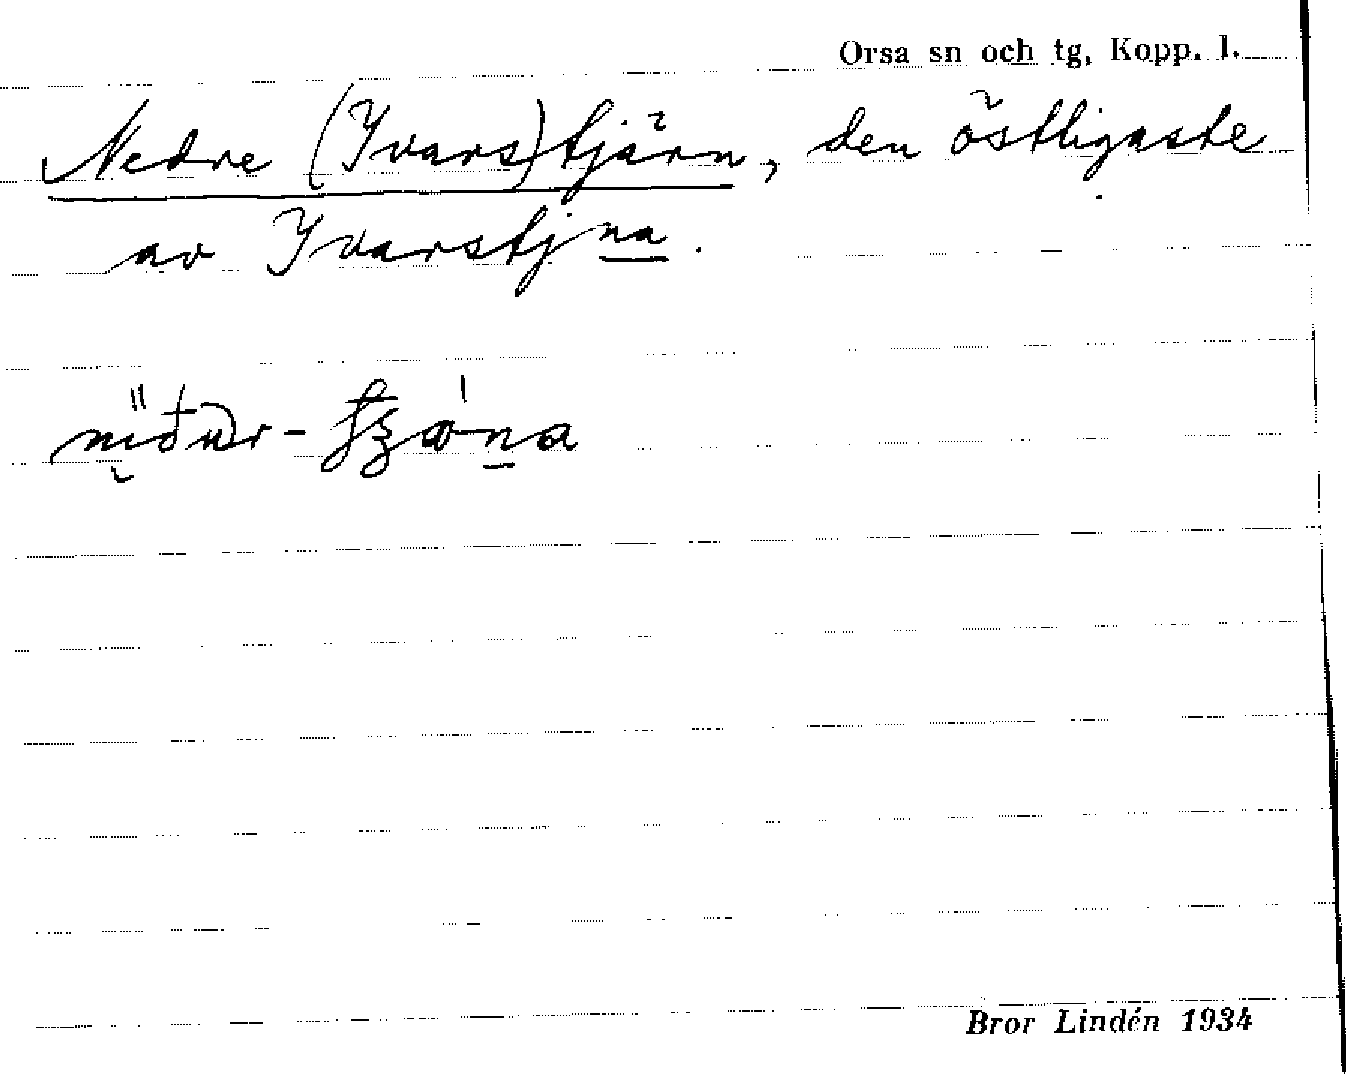 Orsa sn och tg, Kopp. l.
Nedre (Ivars)tjärn, den östligaste
av Ivarstjna.
Bror Lindén 1934